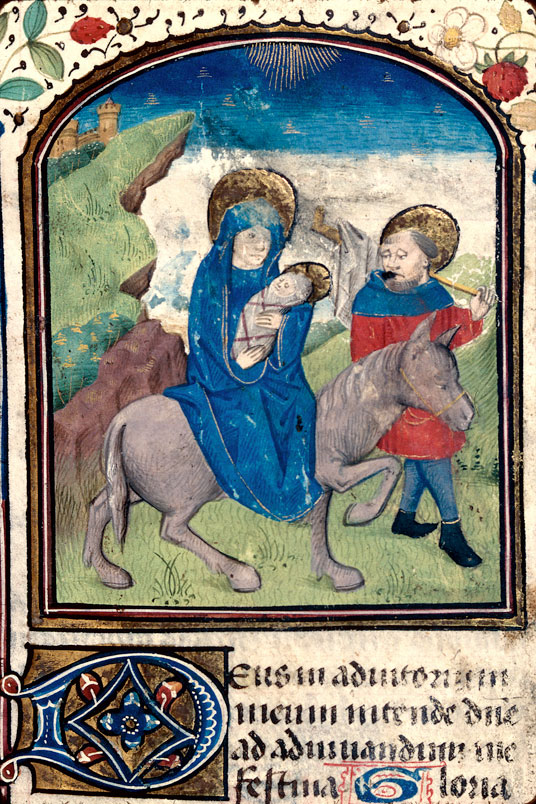 Deus in adiutorium
meum intende dne
ad adiuuandum me
festina Gloria